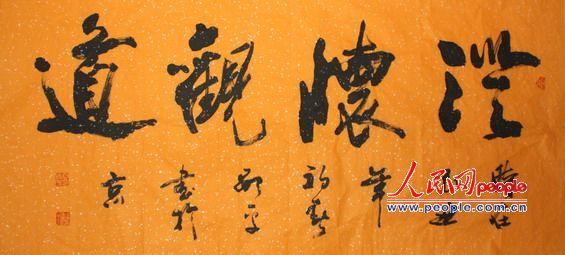 澄懷觀道
時在
年
初春
書於
京
人民网
people
www.people.com.cn